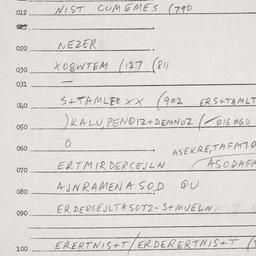 012 NIST CUMEMES (790
015
020 NEZER
030 XO8WTEM (127 (811
031 —
040 S+TAMLER XX (902 ERS+TAMLT
050 ) KALU, PENQIZ+DEMNOZ (/016060
060 O ASEKRE,TAFM70
070 ERTMIRDERCEJLN ASODAFM
080 AJNRAMENA SOD QU
090 ERDERCEJLTASOTZ-S+MUELN
100 ERERTNIS+T/ERDERERTNIS+T (